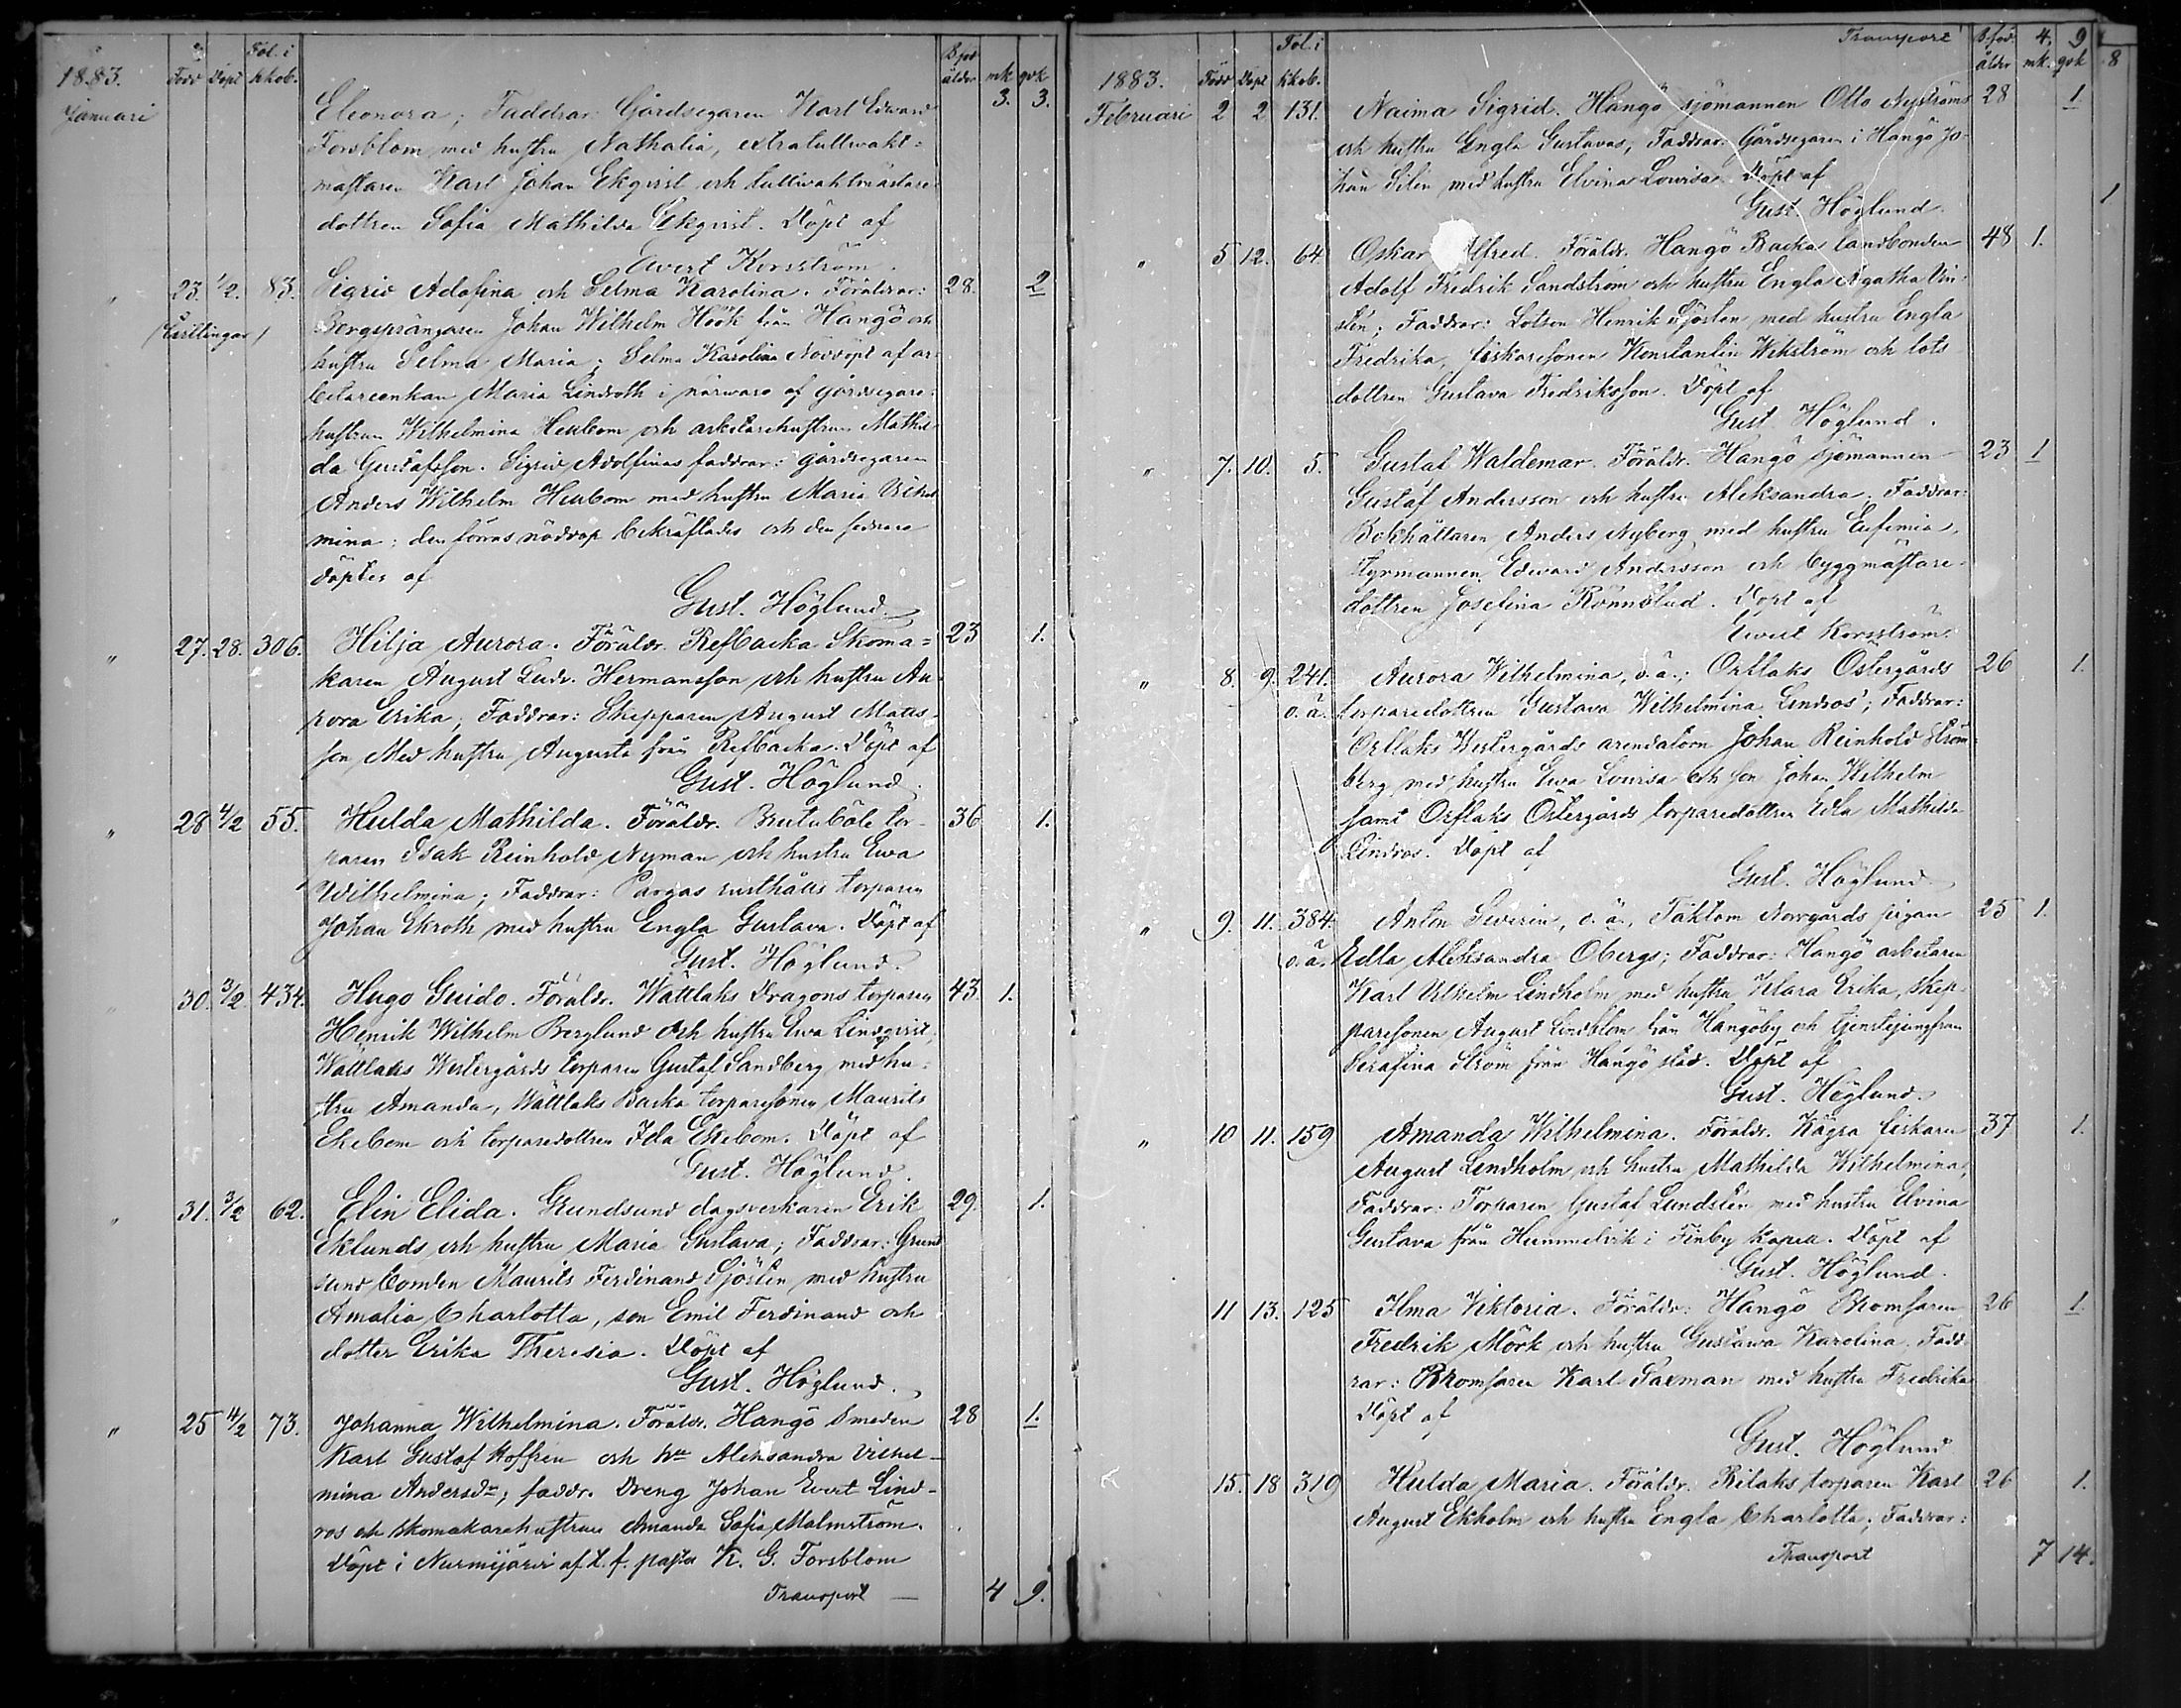 1883.
Född Döpt Fol. i kkob. B. föd ålder mk. qvk
3. 3.
Januari
Eleonora; Faddrar: Gårdsegaren Karl Edward
Forsblom med hustru Nathalia, extratullwakt=
mästaren Karl Johan Ekqvist och tullwaktmästare
dottren Sofia Mathilda Ekqvist. Döpt af
Ewert Korsström.
" 23. 1/2. 83. Sigrid Adolfina och Selma Karolina. Föräldrar: 28. 2
(Tvillingar) Bergsprängaren Johan Wilhelm Höök från Hangö och
hustru Selma Maria; Selma Karolina Nöddöpt af ar-
betareenkan Maria Lindroth i närwaro af gårdsegare-
hustrun Wilhelmina Heubom och arbetarehustrun Mathil-
da Gustafsson. Sigrid Adolfinas faddrar: gårdsegaren
Anders Wilhelm Heubom med hustru Maria Vilhel
mina; den förras nöddop bekräftades och den sednare
döptes af
Gust. Höglund.
" 27. 28. 306. Hilja Aurora. Föräldr. Refbacka Skoma= 23 1.
karen August Ludv. Hermansson och hustru Au-
rora Erika; Faddrar: Skepparen August Matts-
son Med hustru Augusta från Refbacka. Döpt af
Gust. Höglund.
" 28 4/2 55. Hulda Mathilda. Föräldr. Brutuböle tor- 36 1.
paren Isak Reinhold Nyman och hustru Ewa
Wilhelmina; Faddrar: Pargas rusthålls torparen
Johan Ekroth med hustru Engla Gustava. Döpt af
Gust. Höglund.
" 30. 3/2. 434. Hugo Guido. Föräldr. Wättlaks Dragons torparen 43. 1.
Henrik Wilhelm Berglund och hustru Ewa Lindqvist,
Wättlaks Westergårds torparen Gustaf Sandberg med hu-
stru Amanda, Wättlaks Backa torparesonen Maurits
Ekebom och torparedottren Ida Ekebom. Döpt af
Gust. Höglund.
" 31. 3/2 62. Elin Elida. Grundsund dagsverkaren Erik 29. 1.
Eklunds och hustru Maria Gustava; Faddrar: Grund
sund bonden Maurits Ferdinand Sjöstén med hustru
Amalia Charlotta, son Emil Ferdinand och
dotter Erika Theresia. Döpt af
Gust. Höglund.
" 25 4/2 73. Johanna Wilhelmina. Föräldr. Hangö Smeden 28 1.
Karl Gustaf Koffren och hu Aleksandra Vilhel-
mina Andersdr; faddr. Dreng Johan Evert Lind-
ros och skomakarehustrun Amanda Sofia Malmström.
Döpt i Nurmijärvi af t. f. pastor K. G. Forsblom
Transport — 4 9.
Transport 4. 9
8
1883. Född Döpt Fol. i kkob. B. föd. ålder mk. qvk
Februari 2 2 131. Naima Sigrid. Hangö sjömannen Otto Nyströms 28 1.
och hustru Engla Gustavas; Faddrar: Gårdsegaren i Hangö Jo-
han Silén med hustru Elvina Lovisa. Döpt af
Gust. Höglund.
1
" 5 12. 64. Oskar Alfred. Föräldr. Hangö Backas landbonden 48 1.
Adolf Fredrik Sandström och hustru Engla Agatha Vin-
stén; Faddrar: Lotsen Henrik Sjösten med hustru Engla
Fredrika, fiskaresonen Konstantin Wikström och lots
dottren Gustava Fredriksson. Döpt af
Gust. Höglund.
" 7. 10. 5. Gustaf Waldemar. Föräldr. Hangö Sjömannen 23 1
Gustaf Andersson och hustru Aleksandra. Faddrar:
Bokhållaren Anders Nyberg med hustru Eufemia,
styrmannen Edward Andersson och byggmästare-
dottren Josefina Rönnblad. Döpt af
Ewert Korsström.
" 8. 9. 241. Aurora Wilhelmina, o. ä.; Orslaks Östergårds 26 1.
o. ä. torparedottren Gustava Wilhelmina Lindros'; Faddrar:
Orslaks Westergårds arendatorn Johan Reinhold Ström-
berg med hustru Ewa Lovisa och son Johan Wilhelm
samt Orslaks Östergårds torparedottren Edla Mathilda
Lindros. Döpt af
Gust. Höglund.
" 9. 11. 384. Anton Severin, o. ä., Täktom Norrgårds pigan 25 1.
o. ä. Edla Aleksandra Obergs; Faddrar: Hangö arbetaren
Karl Vilhelm Lindholm med hustru Klara Erika, skep-
paresonen August Lindblom från Hangöby och tjenstejungfrun
Serafina Ström från Hangö stad. Döpt af
Gust. Höglund.
" 10 11. 159 Amanda Wilhelmina. Föräldr. Kägra fiskaren 37 1.
August Lindholm och hustru Mathilda Wilhelmina;
Faddrar: Torparen Gustaf Lundstén med hustru Elvina
Gustava från Hummelvik i Finby Kapell. Döpt af
Gust. Höglund.
11 13. 125 Ilma Viktoria. Föräldr: Hangö Bromsaren 26 1.
Fredrik Mörk och hustru Gustawa Karolina. Fadd-
rar: Bromsaren Karl Saxman med hustru Fredrika
Döpt af
Gust. Höglund
15. 18 319 Hulda Maria. Föräldr: Rilaks torparen Karl 26 1.
August Ekholm och hustru Engla Charlotta; Faddrar:
Transport 7 14.